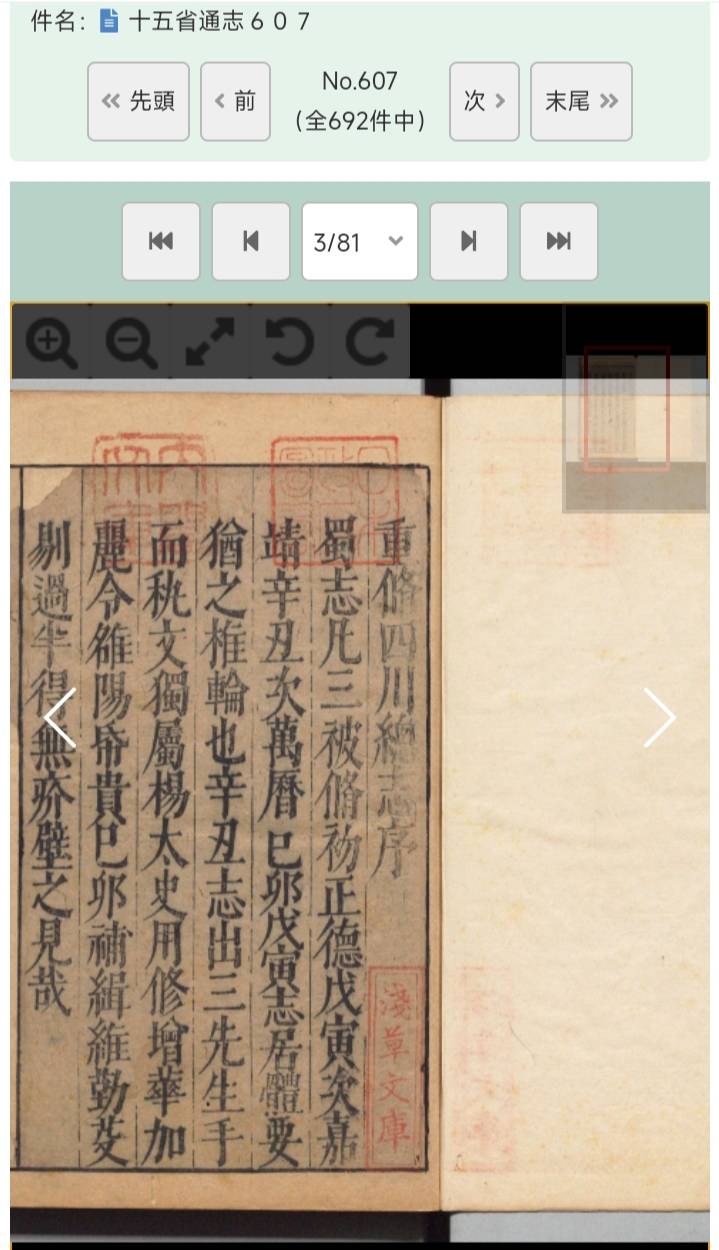 件名: 十五省通志６０７
先頭
前
No.607
(全692件中)
次
末尾
3/81
重脩四川總志序
蜀志凡三被脩初正德戊寅次嘉
靖辛丑次萬曆己卯戊寅志居體要
猶之椎輪也辛丑志出三先生手
而秇文獨屬楊太史用修增華加
麗令雒陽帋貴已卯補緝維勤芟
剔過半得無夼壁之見哉
內閣
淺草文庫